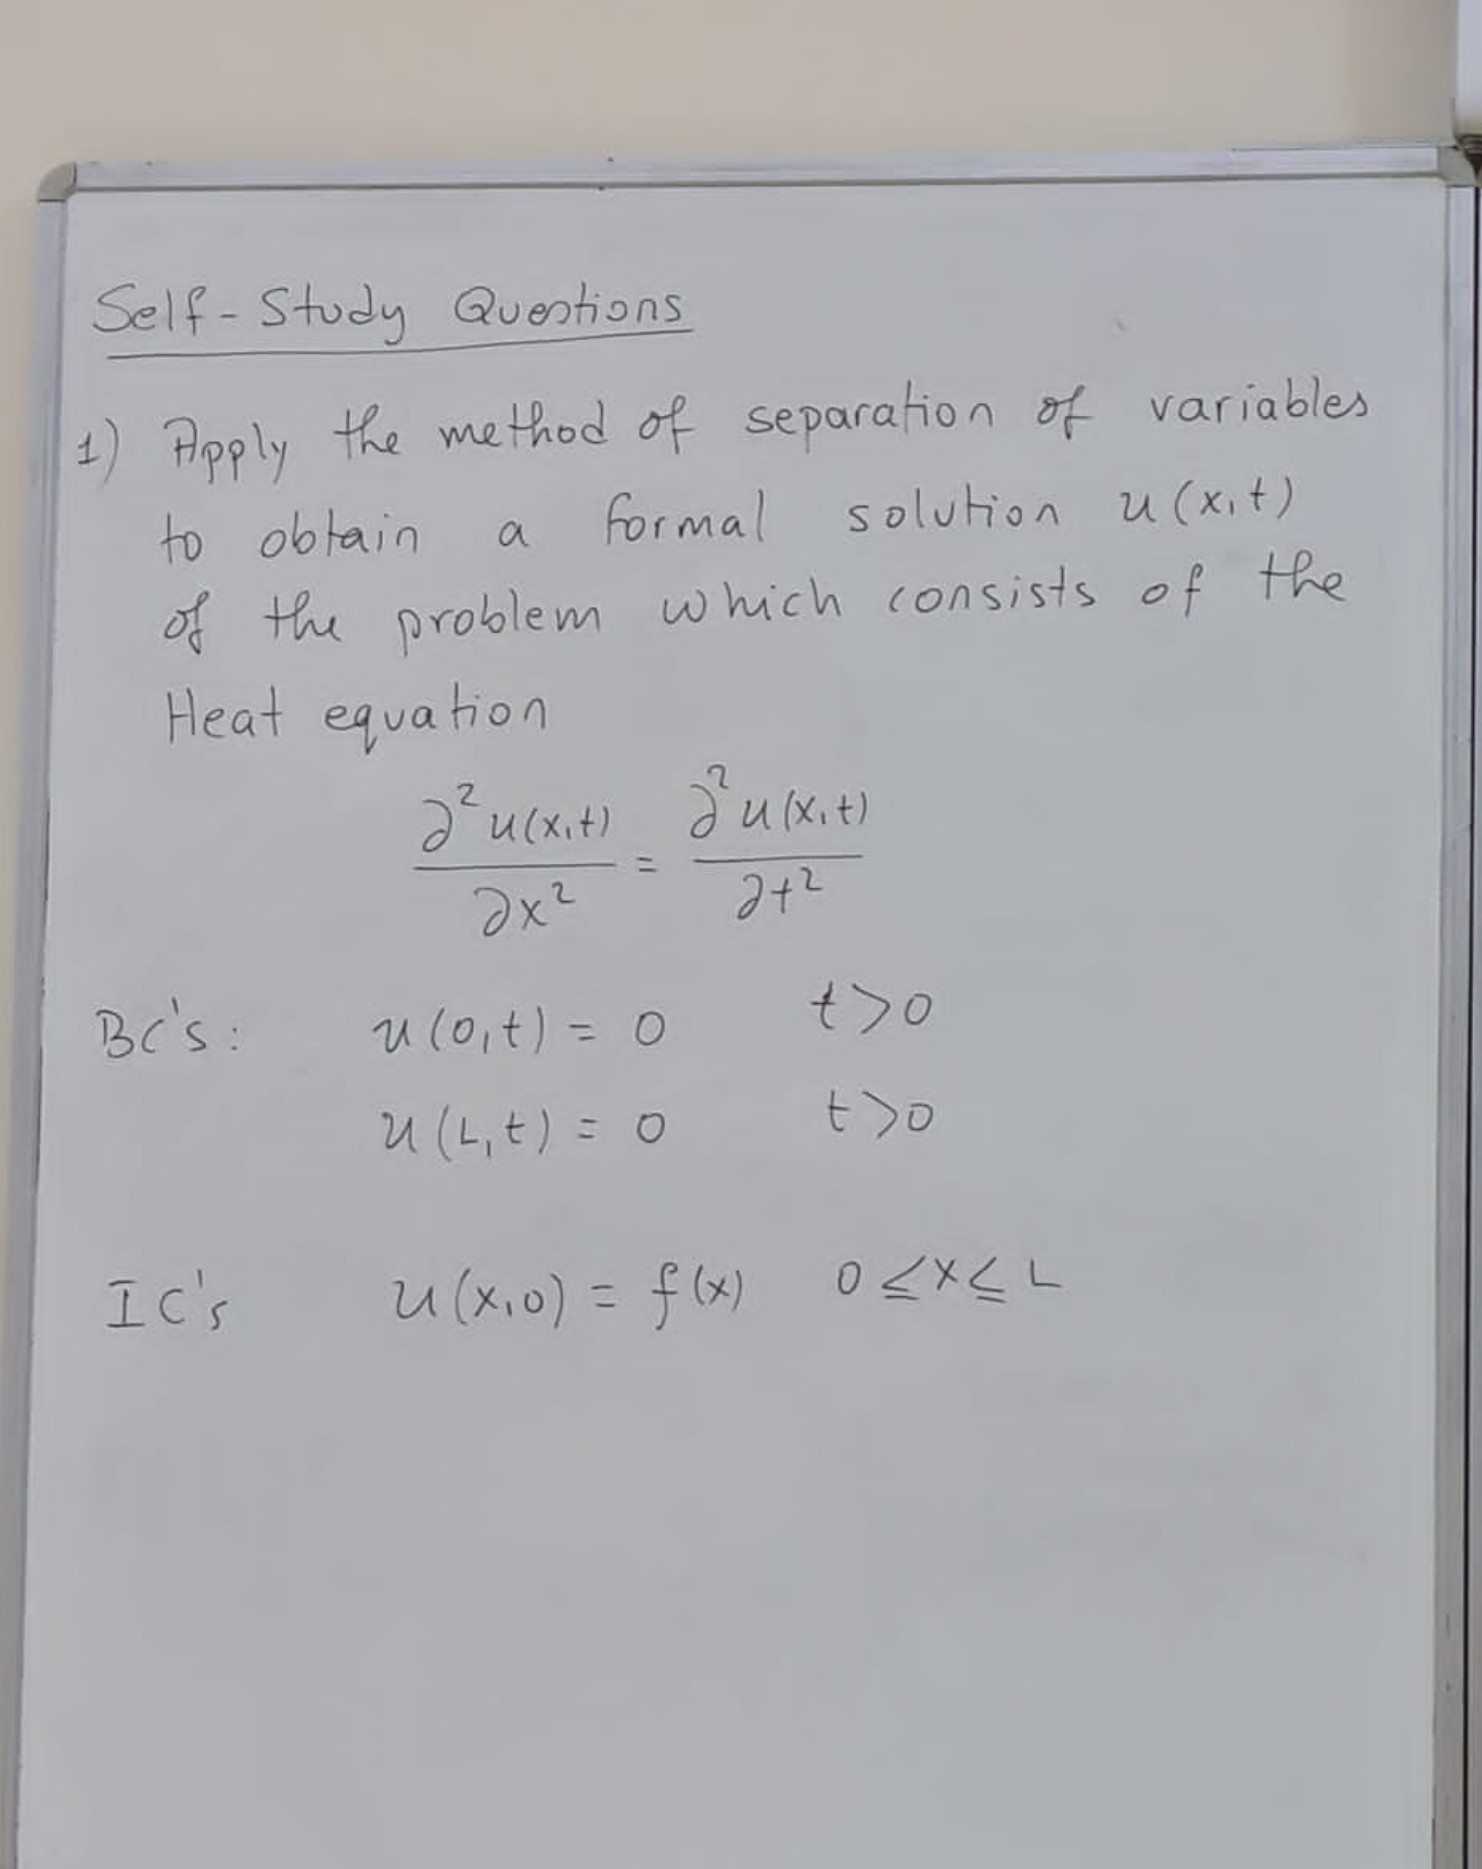 Self-Study Questions
1) Apply the method of separation of variables
to obtain a formal solution u(x,t)
of the problem which consists of the
Heat equation
∂²u(x,t)/∂x² = ∂²u(x,t)/∂t²
BC's: u(0,t) = 0 t>0
u(L,t) = 0 t>0
IC's u(x,0) = f(x) 0≤x≤L